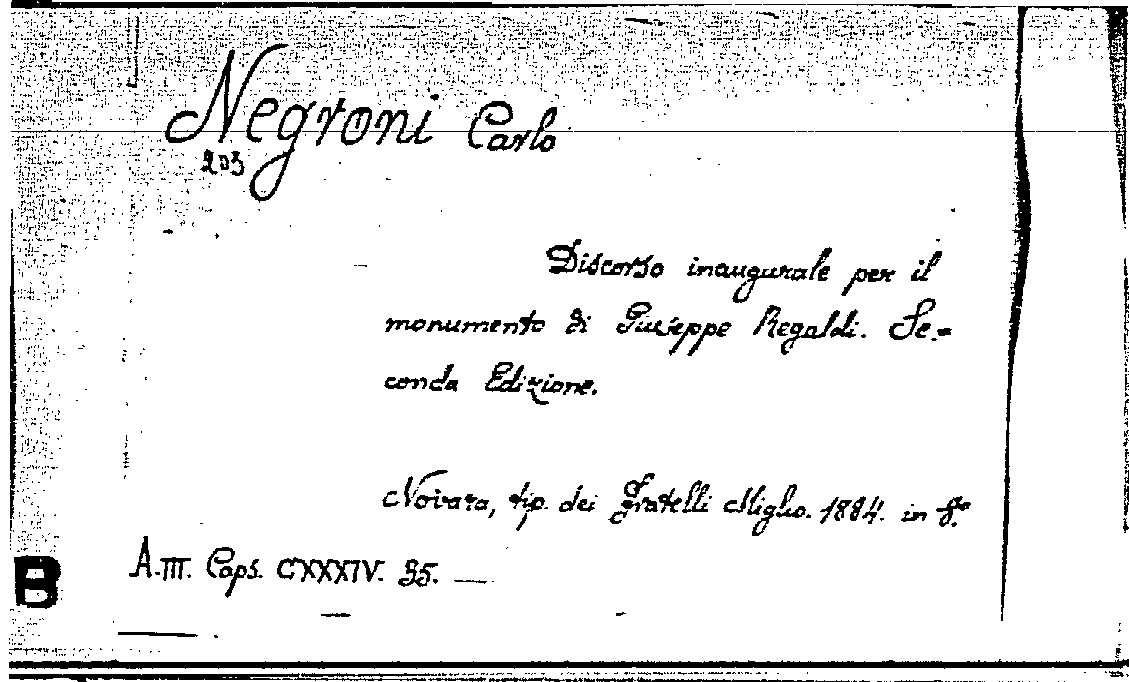 Negroni Carlo
203
Discorso inaugurale per il
monumento di Giuseppe Regaldi. Se=
conda Edizione.
Novara, tip. dei Fratelli Miglio. 1884. in 8.º
A. III. Caps. CXXXIV. 35.
B